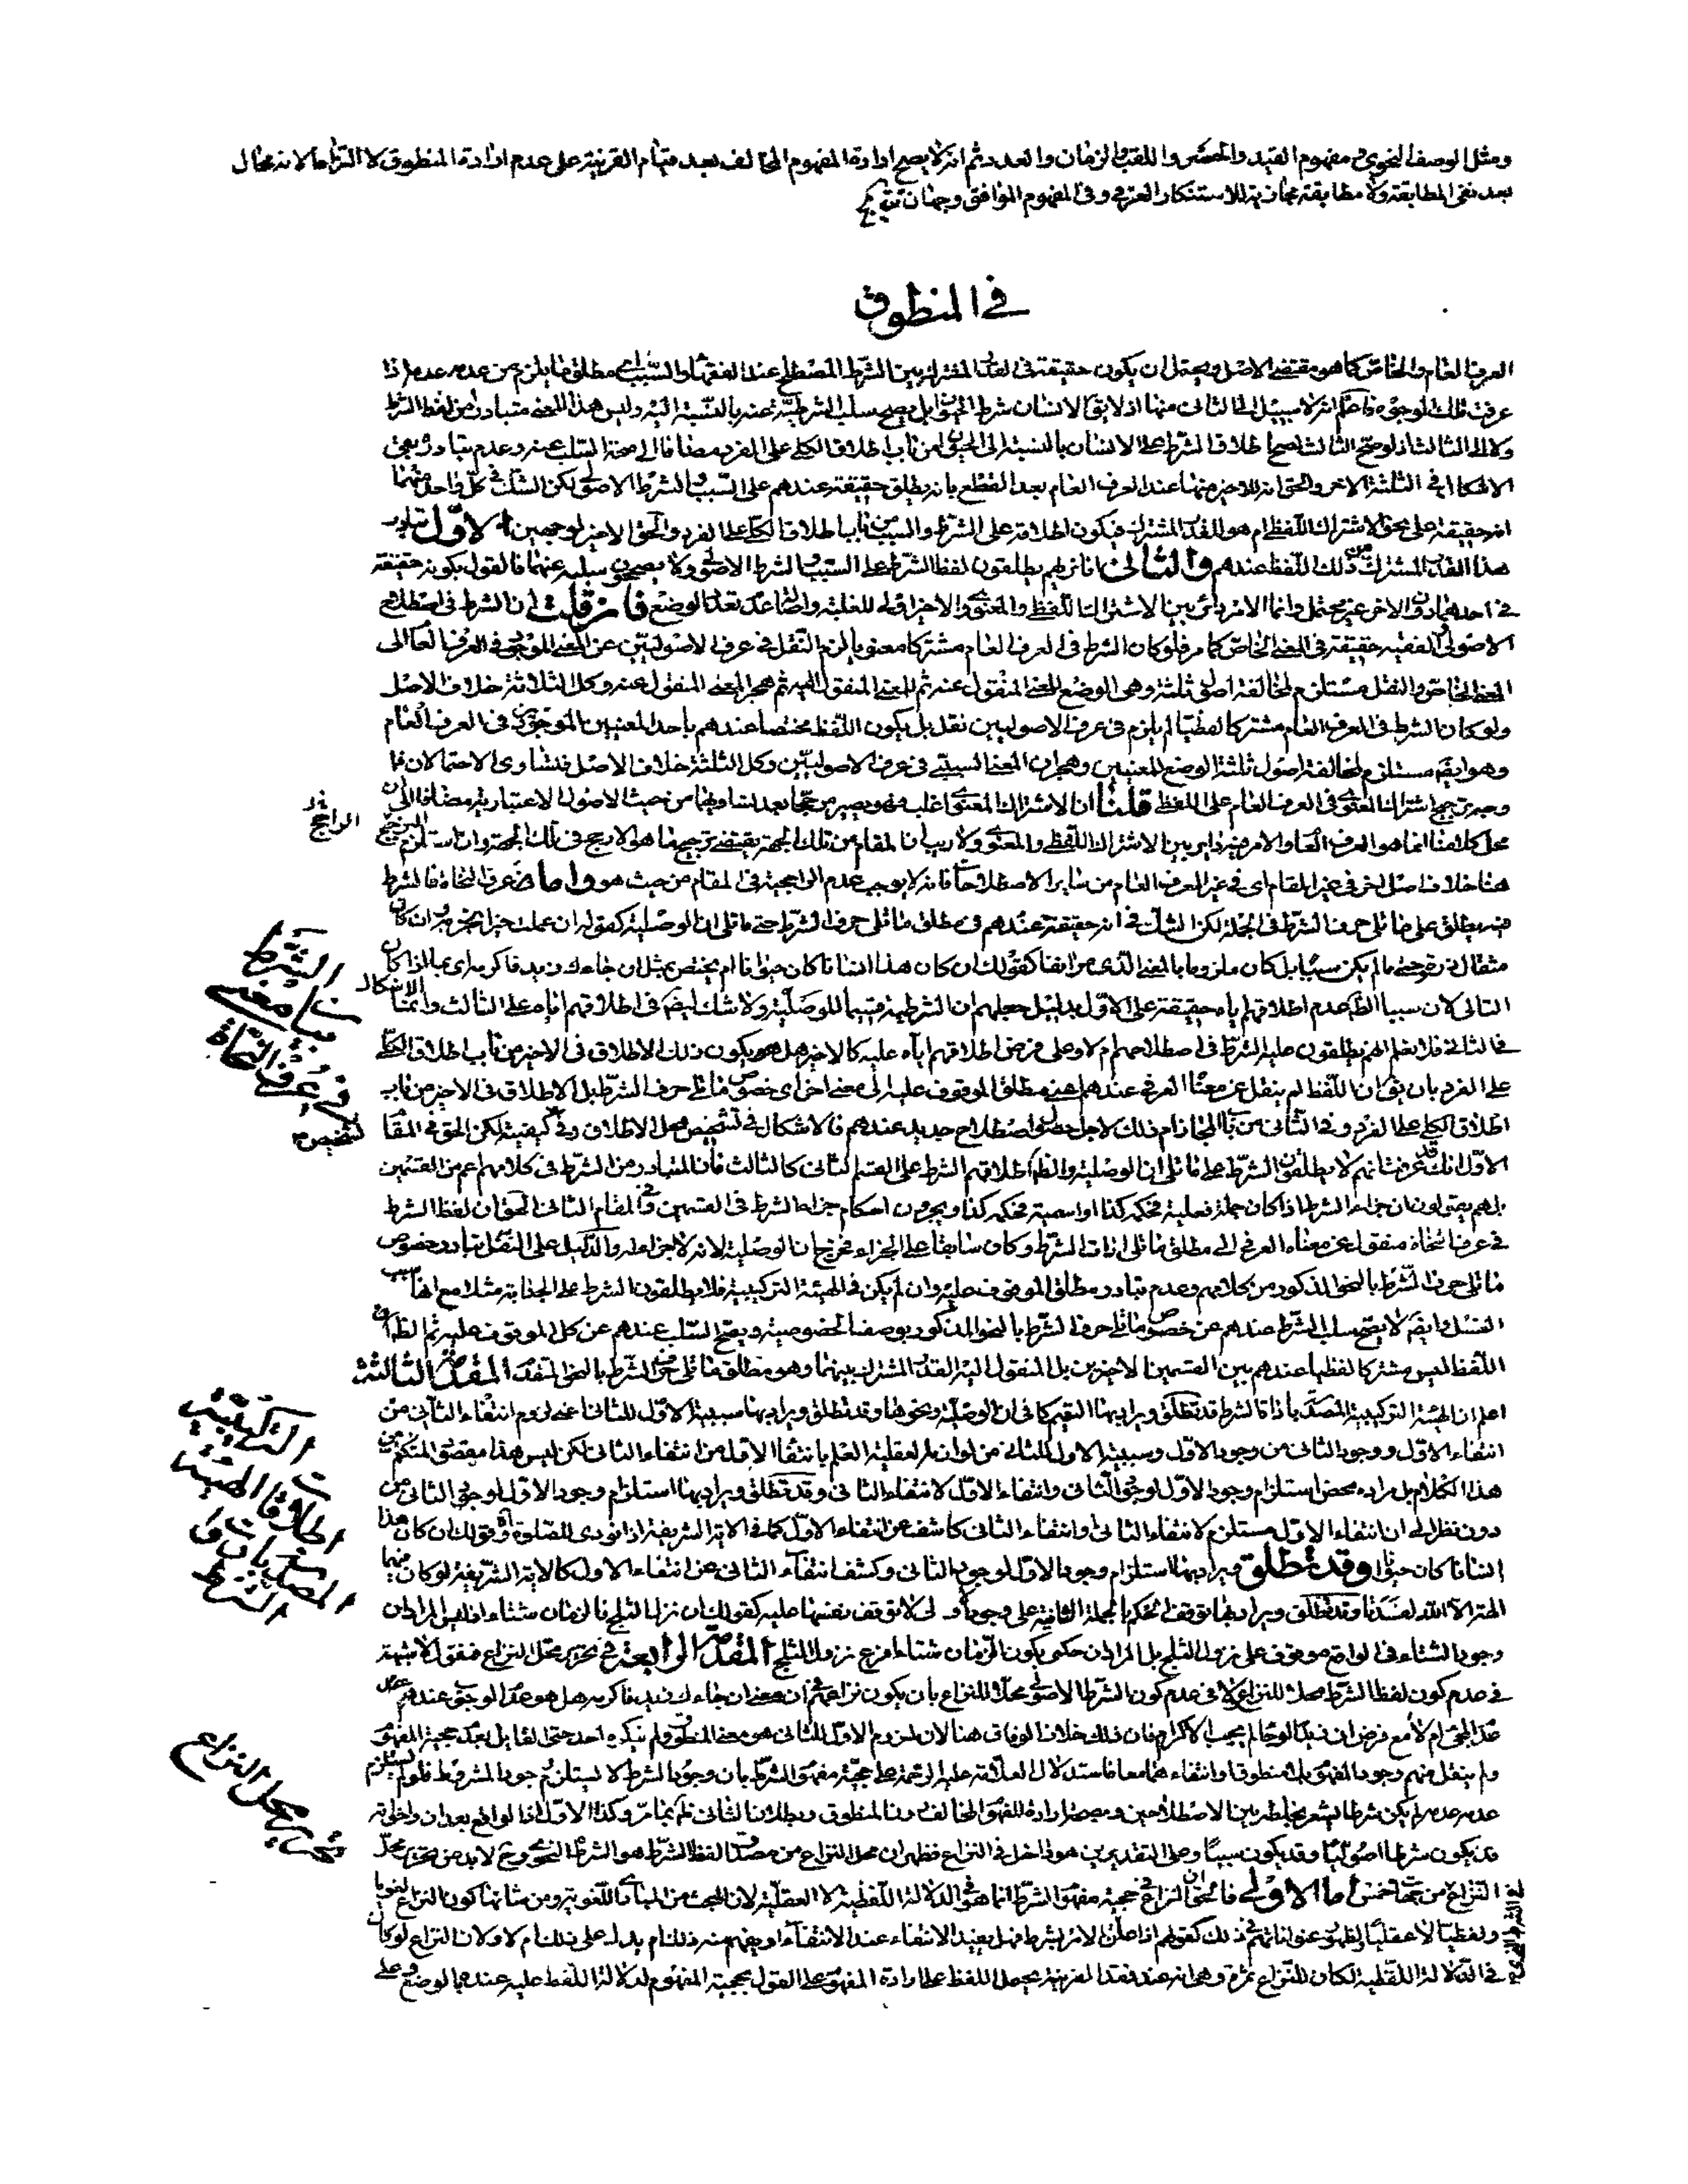 ومثل الوصف النحوي مفهوم القيد والحصر واللقب والزمان والعدد ثم انه لا يصح ارادة المفهوم المخالف بعد قيام القرينة على عدم ارادة المنطوق لا التزاما لانه محال
بعد نفى المطابقة ولا مطابقة مجازية للاستنكار العرفي وفى المفهوم الموافق وجهان
في المنطوق
العرف العام والخاص كما هو مقتضى الاصل ويحتمل ان يكون حقيقة فى القدر المشترك بين الشرط المصطلح عند الفقهاء والسبب اى مطلق ما يلزم من عدمه عدم اذا
عرفت تلك الوجوه فاعلم انه لا سبيل الى الثانى منها اذ لا يق الانسان شرط الحيوان بل يصح سلب الشرطية عنه بالنسبة اليه وليس هذا المعنى متبادرا من لفظ الشرط
ولا الى الثالث اذ لو صح الثالث لصح اطلاق الشرط على الانسان بالنسبة الى الحيوان من باب اطلاق الكلى على الفرد مضافا الى صحة السلب عنه وعدم تبادره بقى
الاشكال فى الثلثة الاخر والحق انه للاخير منها عند العرف العام بعد القطع بانه يطلق حقيقة عندهم على السبب والشرط الاصولى لكن الشك فى كل واحد منهما
انه حقيقة على نحو الاشتراك اللفظى ام هو للقدر المشترك فيكون اطلاقه على الشرط والسبب من باب اطلاق الكلى على الفرد والحق الاخير لوجهين الاول تبادر
هذا القدر المشترك من ذلك اللفظ عندهم والثانى انا نريهم يطلقون لفظ الشرط على السبب والشرط الاصولى ولا يصححون سلبه عنهما فالقول بكونه حقيقة
فى احدهما دون الاخر غير محتمل وانما الامر دائر بين الاشتراك اللفظى والمعنوى والاخير اولى للغلبة واصالة عدم تعدد الوضع فان قلت ان الشرط فى اصطلاح
الاصولى والفقيه حقيقة فى المعنى الخاص كما مر فلو كان الشرط فى العرف العام مشتركا معنويا لزم النقل فى عرف الاصوليين عن المعنى الموجود فى العرف العام الى
المعنى الخاص والنقل مستلزم لمخالفة اصول ثلثة وهى الوضع للمعنى المنقول عنه ثم للمعنى المنقول اليه ثم هجر المعنى المنقول عنه وكل الثلاثة خلاف الاصل
ولو كان الشرط فى العرف العام مشتركا لفظيا لم يلزم فى عرف الاصوليين نقل بل يكون اللفظ مختصا عندهم باحد المعنيين الموجودين فى العرف العام
وهو ايضا مستلزم لمخالفة اصول ثلثة الوضع للمعنيين وهجران المعنى السببى فى عرف الاصوليين وكل الثلثة خلاف الاصل فتساوى الاحتمالان فما
وجه ترجيح اشتراك المعنوى فى العرف العام على اللفظى قلنا ان الاشتراك المعنوى اغلب فهو يصير مرجحا بعد تساويهما من حيث الاصول الاعتبارية مضافا الى ان
محل كلامنا انما هو العرف العام والامر فيه داير بين الاشتراك اللفظى والمعنوى ولا ريب ان المقام من تلك الجهة يقتضى ترجيح ما هو الارجح فى تلك الجهة وان استلزم الترجيح
هنا خلاف اصل اخر فى غير المقام اى فى غير العرف العام من ساير الاصطلاحات فانه لا يوجب عدم الراجحية فى المقام من حيث هو واما فى عرف النحاة فالشرط
فيه يطلق على ما تلى حرف الشرط فى الجملة لكن الشك فى انه حقيقة عندهم فى مطلق ما تلى حرف الشرط حتى ما تلى ان الوصلية كقوله ان عملت خيرا تجز به وان كان
مثقال ذرة حتى ما لم يكن سببا بل كان ملزوما بالمعنى الذى مر انفا كقولك ان كان هذا انسانا كان حيوانا ام يختص بمثل ان جاءك زيد فاكرمه اى بما اذا كان
التالى لان سببا الظ عدم اطلاقهم اياه حقيقة على الاول بدليل جعلهم ان الشرطية قسيما للوصلية ولا شك ايضا فى اطلاقهم اياه على الثالث وانما الاشكال
فى الثانى فلا نعلم انهم يطلقون عليه الشرط فى اصطلاحهم ام لا وعلى فرض اطلاقهم اياه عليه كالاخير هل هو يكون ذلك الاطلاق فى الاخير من باب اطلاق الكلى
على الفرد بان يق ان اللفظ لم ينقل عن معناه العرفى عندهم اعنى مطلق الموقوف عليه الى معنى اخر اى خصوص ما تلى حرف الشرط بل الاطلاق فى الاخير من باب
اطلاق الكلى على الفرد وفى الثانى من باب المجاز ام ذلك لاجل حصول اصطلاح جديد عندهم فالاشكال فى تشخيص محل الاطلاق وفى كيفيته لكن الحق فى المقام
الاول انك قد عرفت انهم لا يطلقون الشرط على ما تلى ان الوصلية والظ اطلاقهم الشرط على القسم الثانى كالثالث فان المتبادر من الشرط فى كلامهم اعم من القسمين
بل هم يقولون ان جزاء الشرط اذا كان جملة فعلية فحكمه كذا او اسمية فحكمه كذا ويجرون احكام جزاء الشرط فى القسمين وفى المقام الثانى الحق ان لفظ الشرط
فى عرف النحاة منقول عن معناه العرفى الى مطلق ما تلى ادات الشرط وكان سابقا على الجزاء فخرج ان الوصلية لانه لا جزاء له والدليل على النقل تبادر خصوص
ما تلى حرف الشرط بالنحو المذكور من كلامهم وعدم تبادر مطلق الموقوف عليه وان لم يكن فى الهيئة التركيبية فلا يطلقون الشرط على الجنابة مثلا مع انها سبب
الغسل وايضا لا يصح سلب الشرط عندهم عن خصوص ما تلى حرف الشرط بالنحو المذكور بوصف الخصوصية ويصح السلب عندهم عن كل الموقوف عليه ثم الظ ان
اللفظ ليس مشتركا لفظيا عندهم بين القسمين الاخيرين بل المنقول اليه القدر المشترك بينهما وهو مطلق ما تلى حرف الشرط بالنحو المتقدم المقدمة الثالثة
اعلم ان الهيئة التركيبية المصدرة بادات الشرط قد تطلق ويراد بها التعميم كما فى ان الوصلية ونحوها وقد تطلق ويراد بها سببية الاول للثانى اعنى لزوم انتفاء الثانى من
انتفاء الاول ووجود الثانى من وجود الاول وسببية الاول للثانى من لوازمه العقلية العلم بانتفاء الاول من انتفاء الثانى لكن ليس هذا مقصود المتكلم من
هذا الكلام بل مراده محض استلزام وجود الاول لوجود الثانى وانتفاء الاول لانتفاء الثانى وقد تطلق ويراد بها استلزام وجود الاول لوجود الثانى من
دون نظر الى ان انتفاء الاول مستلزم لانتفاء الثانى او انتفاء الثانى كاشف عن انتفاء الاول كما فى الاية الشريفة اذا نودى للصلوة او قولك ان كان هذا
انسانا كان حيوانا وقد تطلق ويراد بها استلزام وجود الاول لوجود الثانى وكشف انتفاء الثانى عن انتفاء الاول كالاية الشريفة لو كان فيهما
الهة الا الله لفسدتا وقد تطلق ويراد بها توقف الحكم بالجملة الثانية على وجود الاولى لا توقف نفسها عليه كقولك ان نزل الثلج فالزمان شتاء اذ ليس المراد ان
وجود الشتاء فى الواقع موقوف على نزول الثلج بل المراد ان حكمى بكون الزمان شتاء فرع نزول الثلج المقدمة الرابعة فى تحرير محل النزاع فنقول لا شبهة
فى عدم كون لفظ الشرط محلا للنزاع ولا فى عدم كون الشرط الاصولى محلا للنزاع بان يكون نزاعهم فى ان معنى ان جاءك زيد فاكرمه هل هو عدم الوجوب عند
عدم المجئ ام لا مع فرض ان زيدا لو جاء لم يجب الاكرام فان ذلك خلاف الوفاق هنا لان لزوم الاول للثانى هو معنى المنطوق ولم ينكره احد حتى القايل بعدم حجية المفهوم
ولم ينقل منهم وجود المفهوم بلا منطوق او انتفاء هما معا فاستدلال العلامة عليه الرحمة على حجية مفهوم الشرط بان وجود الشرط لا يستلزم وجود المشروط فلو لم يستلزم
عدمه عدمه لم يكن شرطا يشعر بخلطه بين الاصطلاحين
قد يكون شرطا اصوليا وقد يكون سببا وعلى التقديرين هو داخل فى النزاع فظهر ان محل النزاع من مصداق لفظ الشرط هو الشرط النحوى وح لا بد من تحرير محل
النزاع من جهات خمس اما الاولى فالحق ان النزاع فى حجية مفهوم الشرط انما هو فى الدلالة اللفظية لا العقلية لان البحث من المبادى اللغوية ومن شانها كون النزاع لغويا
ولفظيا لا عقليا ولظهور عنواناتهم فى ذلك كقولهم اذا علق الامر بشرط فهل يفيد الانتفاء عند الانتفاء او يفهم منه ذلك ام يدل على ذلك ام لا ولان النزاع لو كان
فى الدلالة اللفظية لكان للنزاع ثمرة وهى انه عند فقد القرينة يحمل اللفظ على ارادة المفهوم على القول بحجية المفهوم لدلالة اللفظ عليه عندهم بالوضع وعلى
الشرط
بيان معنى
فى عرف النحاة
لتشخيص
اطلاقات الهيئة التركيبية
المصدرة بادات
الشرط
تحرير محل النزاع